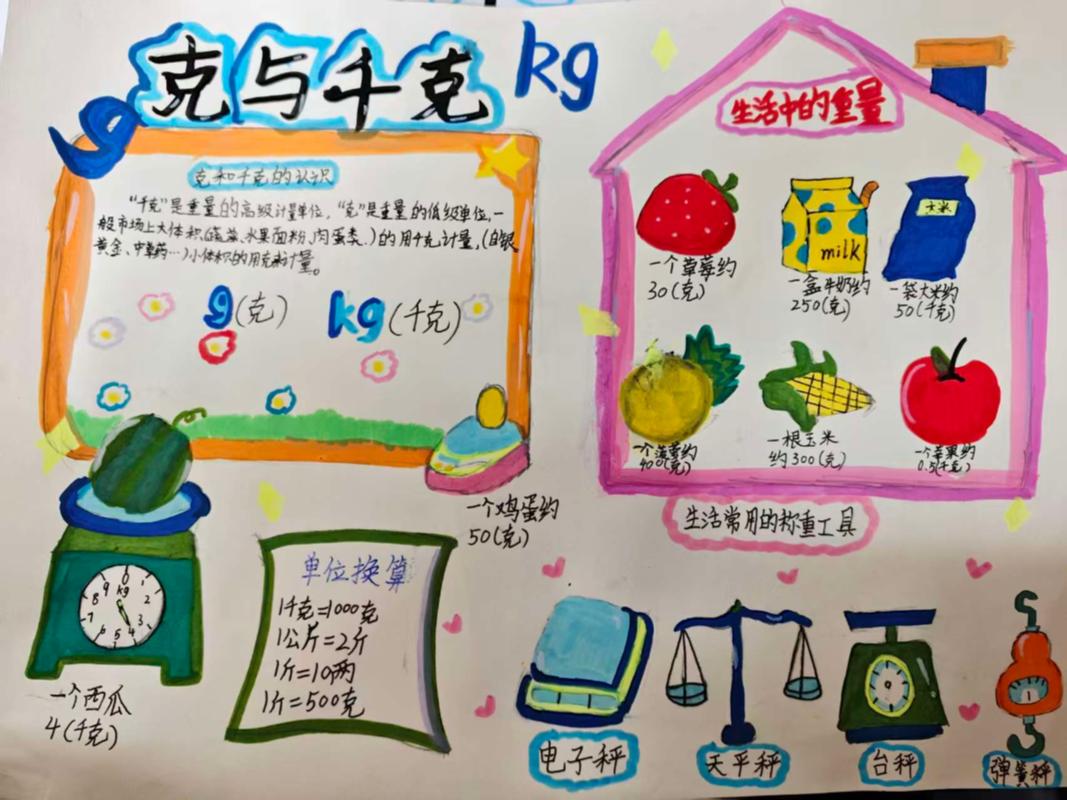 克与千克 kg
g
克和千克的认识
“千克”是重量的高级计量单位，“克”是重量的低级单位，一
般市场上大体积(蔬菜、水果面粉、肉蛋类、)的用千克计量，(白银
黄金、中草药…)小体积的用克来计量。
g(克) kg(千克)
一个鸡蛋约
50(克)
生活中的重量
一个草莓约
30(克)
milk
一盒牛奶约
250(克)
大米
一袋大米约
50(千克)
一个菠萝约
400(克)
一根玉米
约300(克)
一个苹果约
0.5(千克)
0 kg 2 3 4 5 7 8 9
一个西瓜
4(千克)
单位换算
1千克=1000克
1公斤=2斤
1斤=10两
1斤=500克
生活常用的称重工具
电子秤
天平秤
台秤
弹簧秤